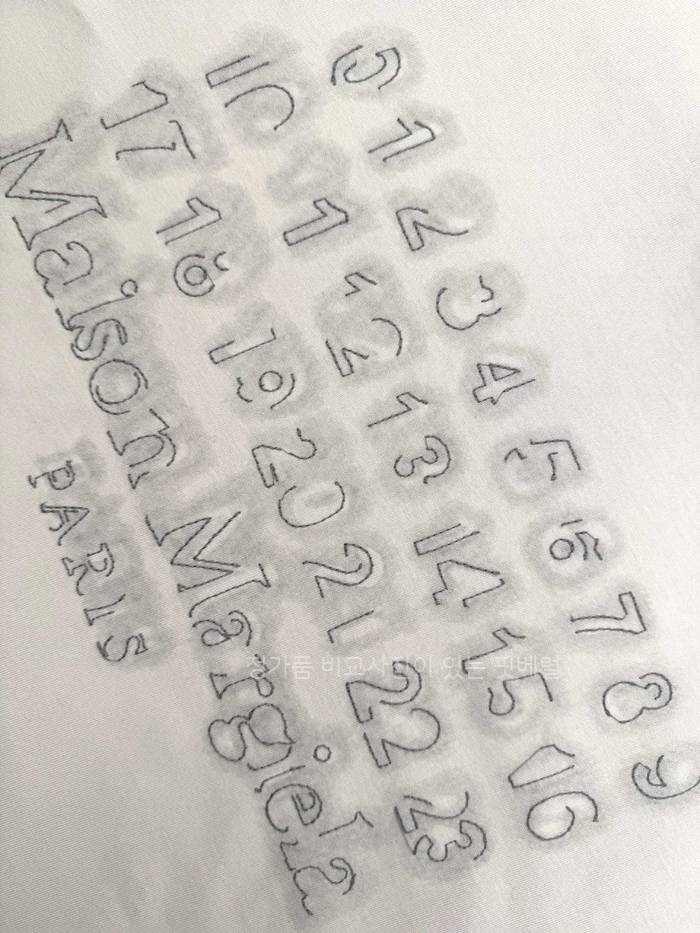 0 1 2 3 4 5 6 7 8 9
10 11 12 13 14 15 16
17 18 19 20 21 22 23
Maison Margiela
PARIS
정가품 비교사진이 있는 핏베럴